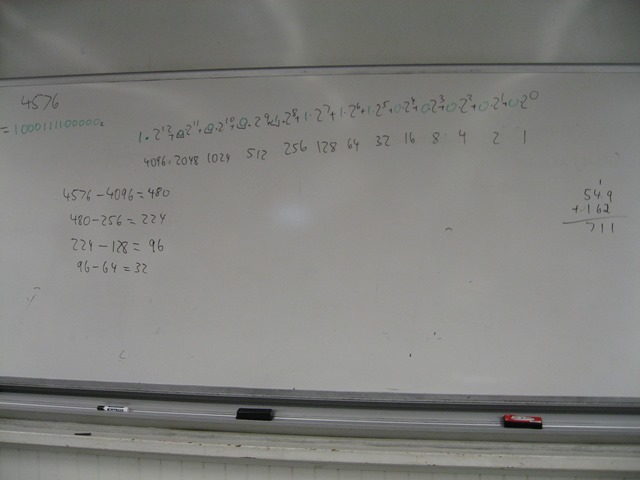 4576
= 1000111100000₂
1·2¹²+0·2¹¹+0·2¹⁰+0·2⁹+1·2⁸+1·2⁷+1·2⁶+1·2⁵+0·2⁴+0·2³+0·2²+0·2¹+0·2⁰
4096 2048 1024 512 256 128 64 32 16 8 4 2 1
4576-4096=480
480-256=224
224-128=96
96-64=32
1
549
+162
711